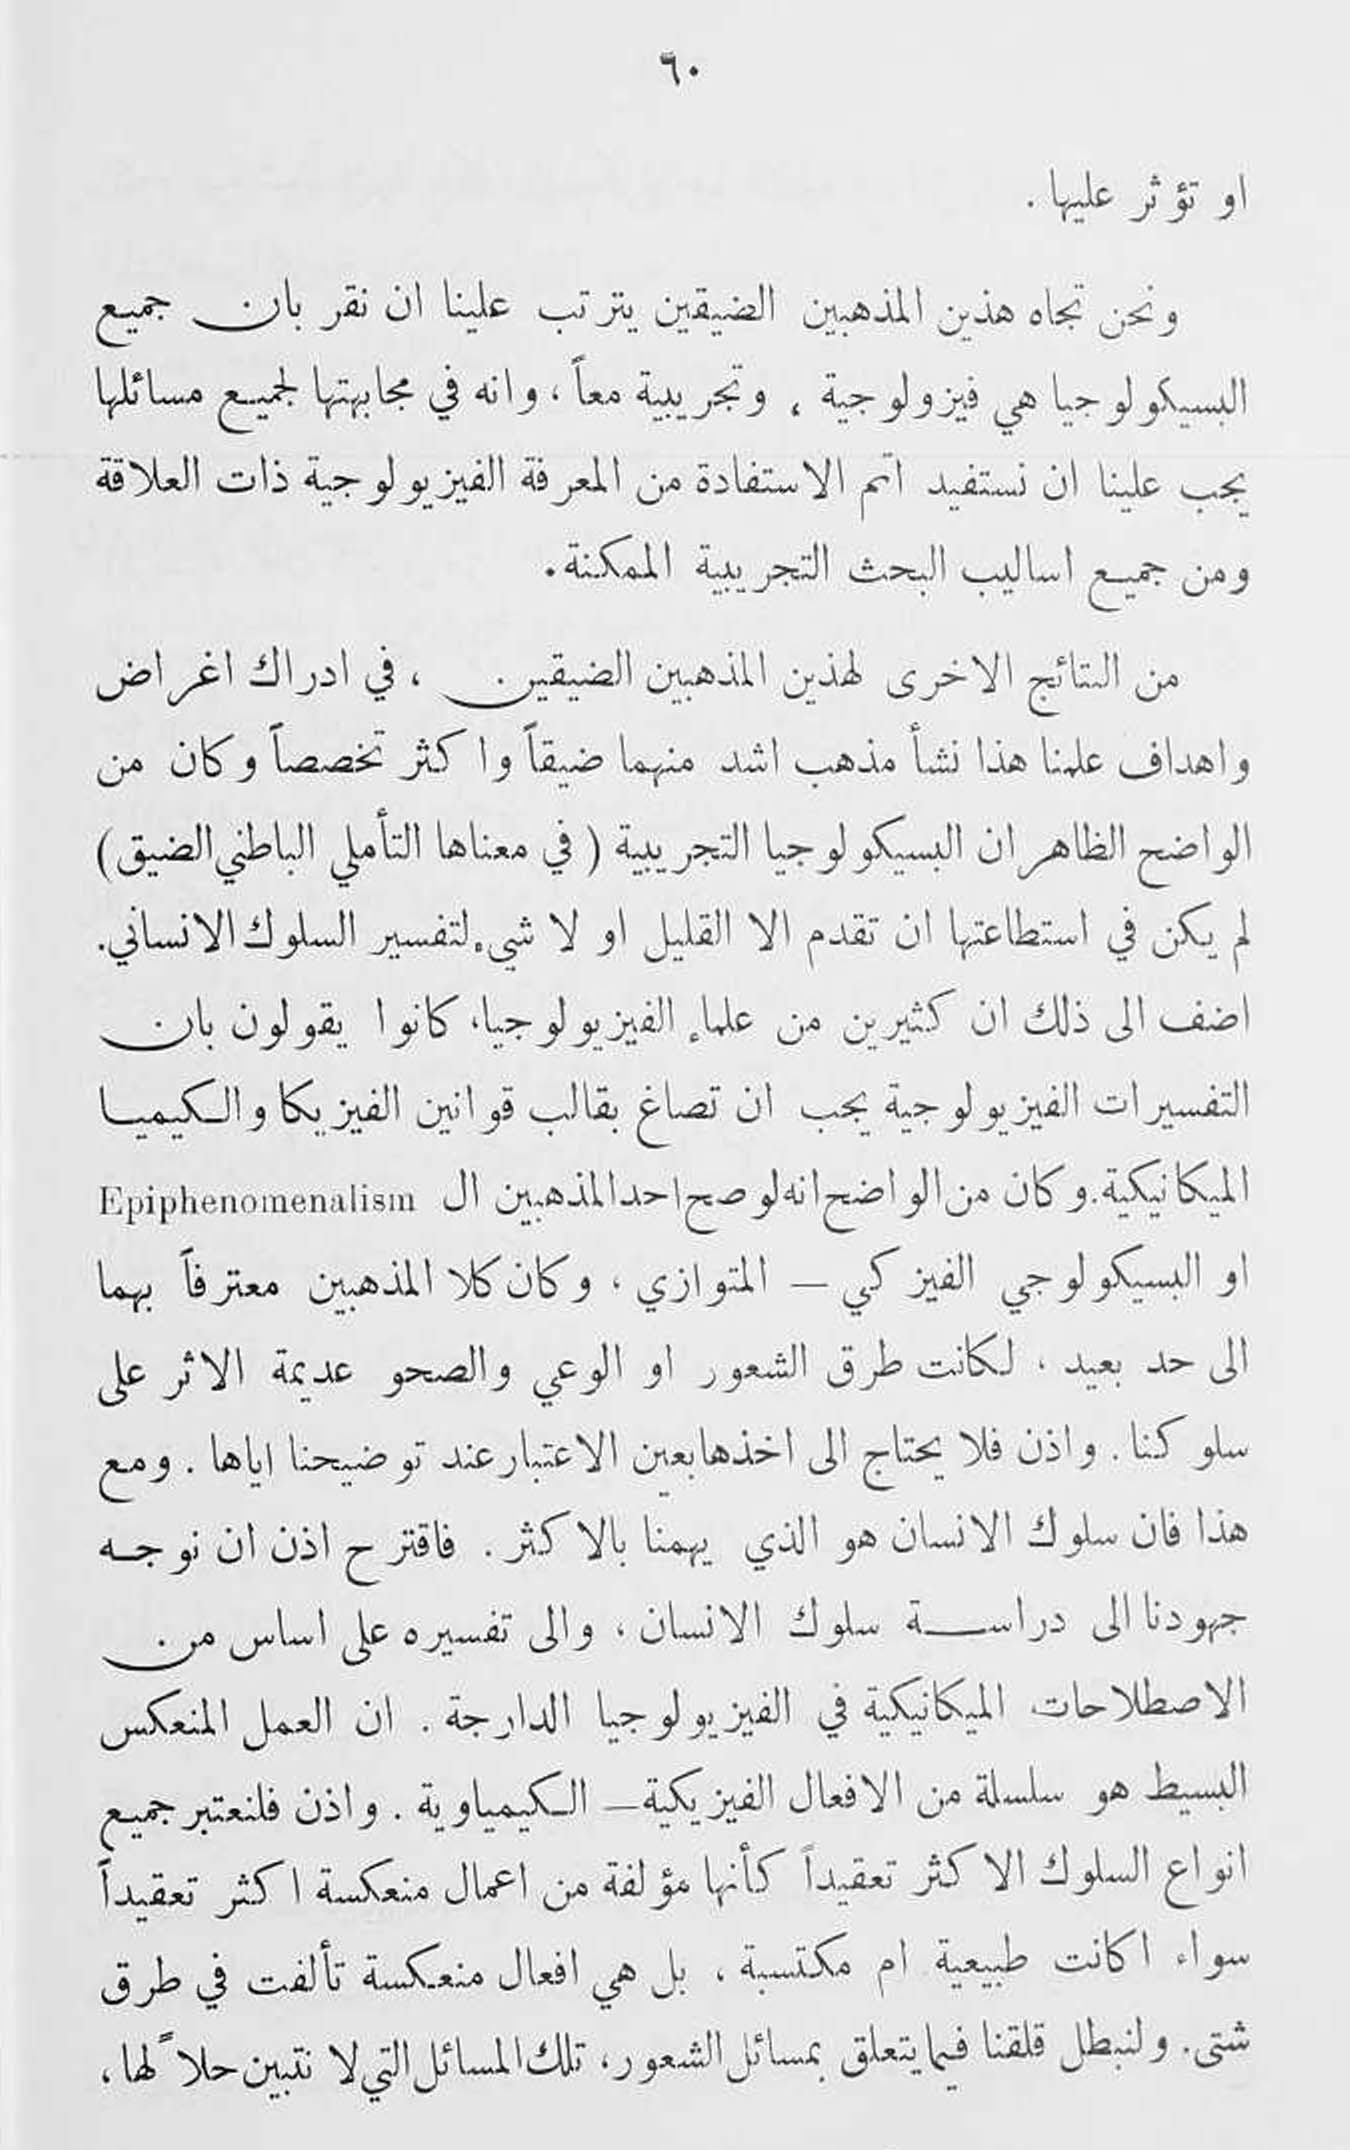 ٦٠
او تؤثر عليها .
ونحن تجاه هذين المذهبين الضيقين يترتب علينا ان نقر بان جميع
البسيكولوجيا هي فيزولوجية ، وتجريبية معاً ، وانه في مجابهتها لجميع مسائلها
يجب علينا ان نستفيد اتم الاستفادة من المعرفة الفيزيولوجية ذات العلاقة
ومن جميع اساليب البحث التجريبية الممكنة .
من النتائج الاخرى لهذين المذهبين الضيقين ، في ادراك اغراض
واهداف علمنا هذا نشأ مذهب اشد منهما ضيقاً واكثر تخصصاً وكان من
الواضح الظاهر ان البسيكولوجيا التجريبية ( في معناها التأملي الباطني الضيق )
لم يكن في استطاعتها ان تقدم الا القليل او لا شيء لتفسير السلوك الانساني .
اضف الى ذلك ان كثيرين من علماء الفيزيولوجيا ، كانوا يقولون بان
التفسيرات الفيزيولوجية يجب ان تصاغ بقالب قوانين الفيزيكا والكيميا
الميكانيكية . وكان من الواضح انه لو صح احد المذهبين ال Epiphenomenalism
او البسيكولوجي الفيزكي — المتوازي ، وكان كلا المذهبين معترفاً بهما
الى حد بعيد ، لكانت طرق الشعور او الوعي والصحو عديمة الاثر على
سلوكنا . واذن فلا يحتاج الى اخذها بعين الاعتبار عند توضيحنا اياها . ومع
هذا فان سلوك الانسان هو الذي يهمنا بالاكثر . فاقترح اذن ان نوجه
جهودنا الى دراسة سلوك الانسان ، والى تفسيره على اساس من
الاصطلاحات الميكانيكية في الفيزيولوجيا الدارجة . ان العمل المنعكس
البسيط هو سلسلة من الافعال الفيزيكية — الكيمياوية . واذن فلنعتبر جميع
انواع السلوك الاكثر تعقيداً كأنها مؤلفة من اعمال منعكسة اكثر تعقيداً
سواء اكانت طبيعية ام مكتسبة ، بل هي افعال منعكسة تألفت في طرق
شتى . ولنبطل قلقنا فيما يتعلق بمسائل الشعور ، تلك المسائل التي لا نتبين حلاً لها ،